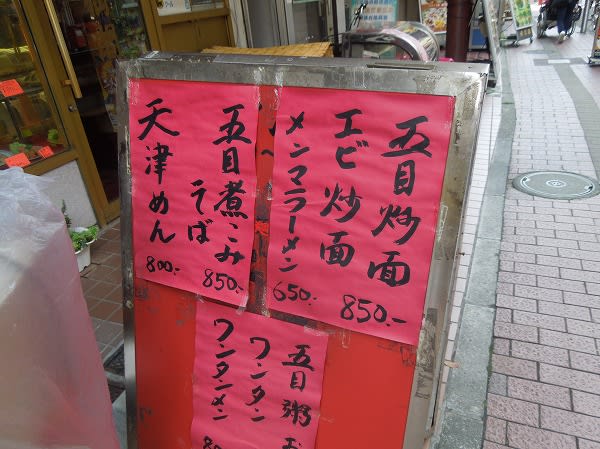 五目炒面
850.-
エビ炒面
メンマラーメン
650.-
五目煮こみ
そば
850.-
天津めん
800.-
五目粥
ワンタン
ワンタンメン